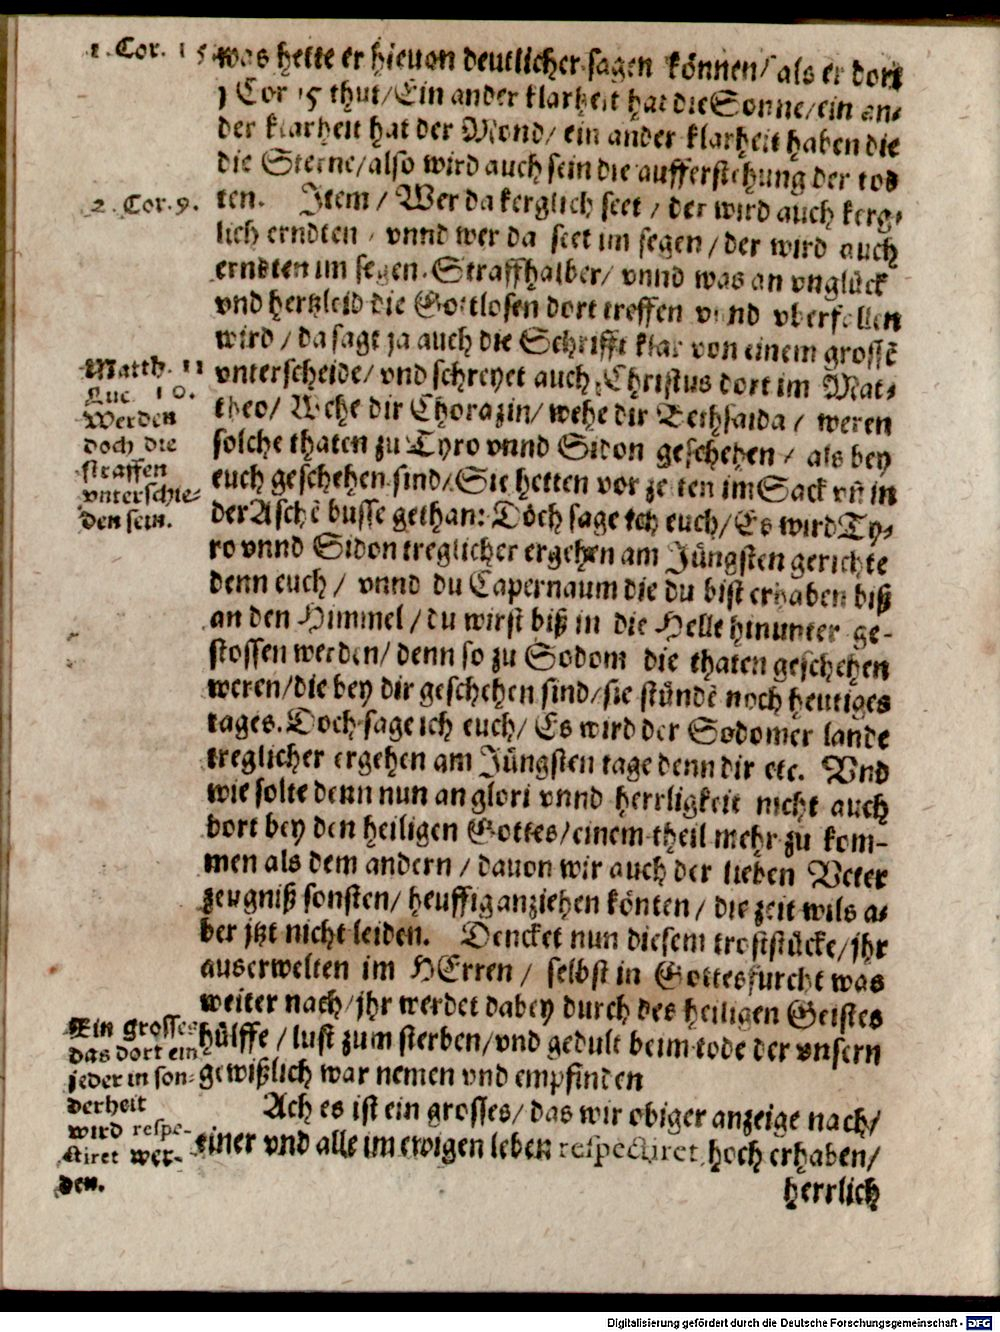 1. Cor. 15.
was hette er hieuon deutlicher sagen können/ als er dort
1 Cor 15 thut/ Ein ander klarheit hat die Sonne/ ein an-
der klarheit hat der Mond/ ein ander klarheit haben die
die Sterne/ also wird auch sein die aufferstehung der tod
2. Cor. 9.
ten. Item / Wer da kerglich seet / der wird auch kerg-
lich erndten / vnnd wer da seet im segen / der wird auch
erndten im segen. Straffhalber/ vnnd was an vnglück
vnd hertzleid die Gottlosen dort treffen vnnd vberfallen
wird / da sagt ja auch die Schrifft klar von einem grossẽ
Matth. 11
Luc 10.
Werden
doch die
straffen
vnterschie-
den sein.
vnterscheide/ vnd schreyet auch Christus dort im Mat-
theo/ Wehe dir Chorazin/ wehe dir Bethsaida / weren
solche thaten zu Tyro vnnd Sidon geschehen / als bey
euch geschehen sind/ Sie hetten vor zeiten im Sack vñ in
der Aschẽ busse gethan: Doch sage ich euch/ Es wird Ty-
ro vnnd Sidon treglicher ergehen am Jüngsten gerichte
denn euch / vnnd du Capernaum die du bist erhaben biß
an den Himmel / du wirst biß in die Helle hinunter ge-
stossen werden/ denn so zu Sodom die thaten geschehen
weren/ die bey dir geschehen sind/ sie stündẽ noch heutiges
tages. Doch sage ich euch/ Es wird der Sodomer lande
treglicher ergehen am Jüngsten tage denn dir etc. Vnd
wie solte denn nun an glori vnnd herrligkeit nicht auch
dort bey den heiligen Gottes/ einem theil mehr zu kom-
men als dem andern / dauon wir auch der lieben Veter
zeugniß sonsten/ heuffig anziehen könten / die zeit wils a-
ber jtzt nicht leiden. Dencket nun diesem troststücke/ jhr
auserwelten im HErren / selbst in Gottesfurcht was
weiter nach/ jhr werdet dabey durch des heiligen Geistes
hülffe / lust zum sterben/ vnd gedult beim tode der vnsern
gewißlich war nemen vnd empfinden
Ein grosses
das dort ein
jeder in son-
derheit
wird respe-
ctiret wer-
den.
Ach es ist ein grosses/ das wir obiger anzeige nach/
einer vnd alle im ewigen leben respectiret hoch erhaben/
herrlich
Digitalisierung gefördert durch die Deutsche Forschungsgemeinschaft - DFG